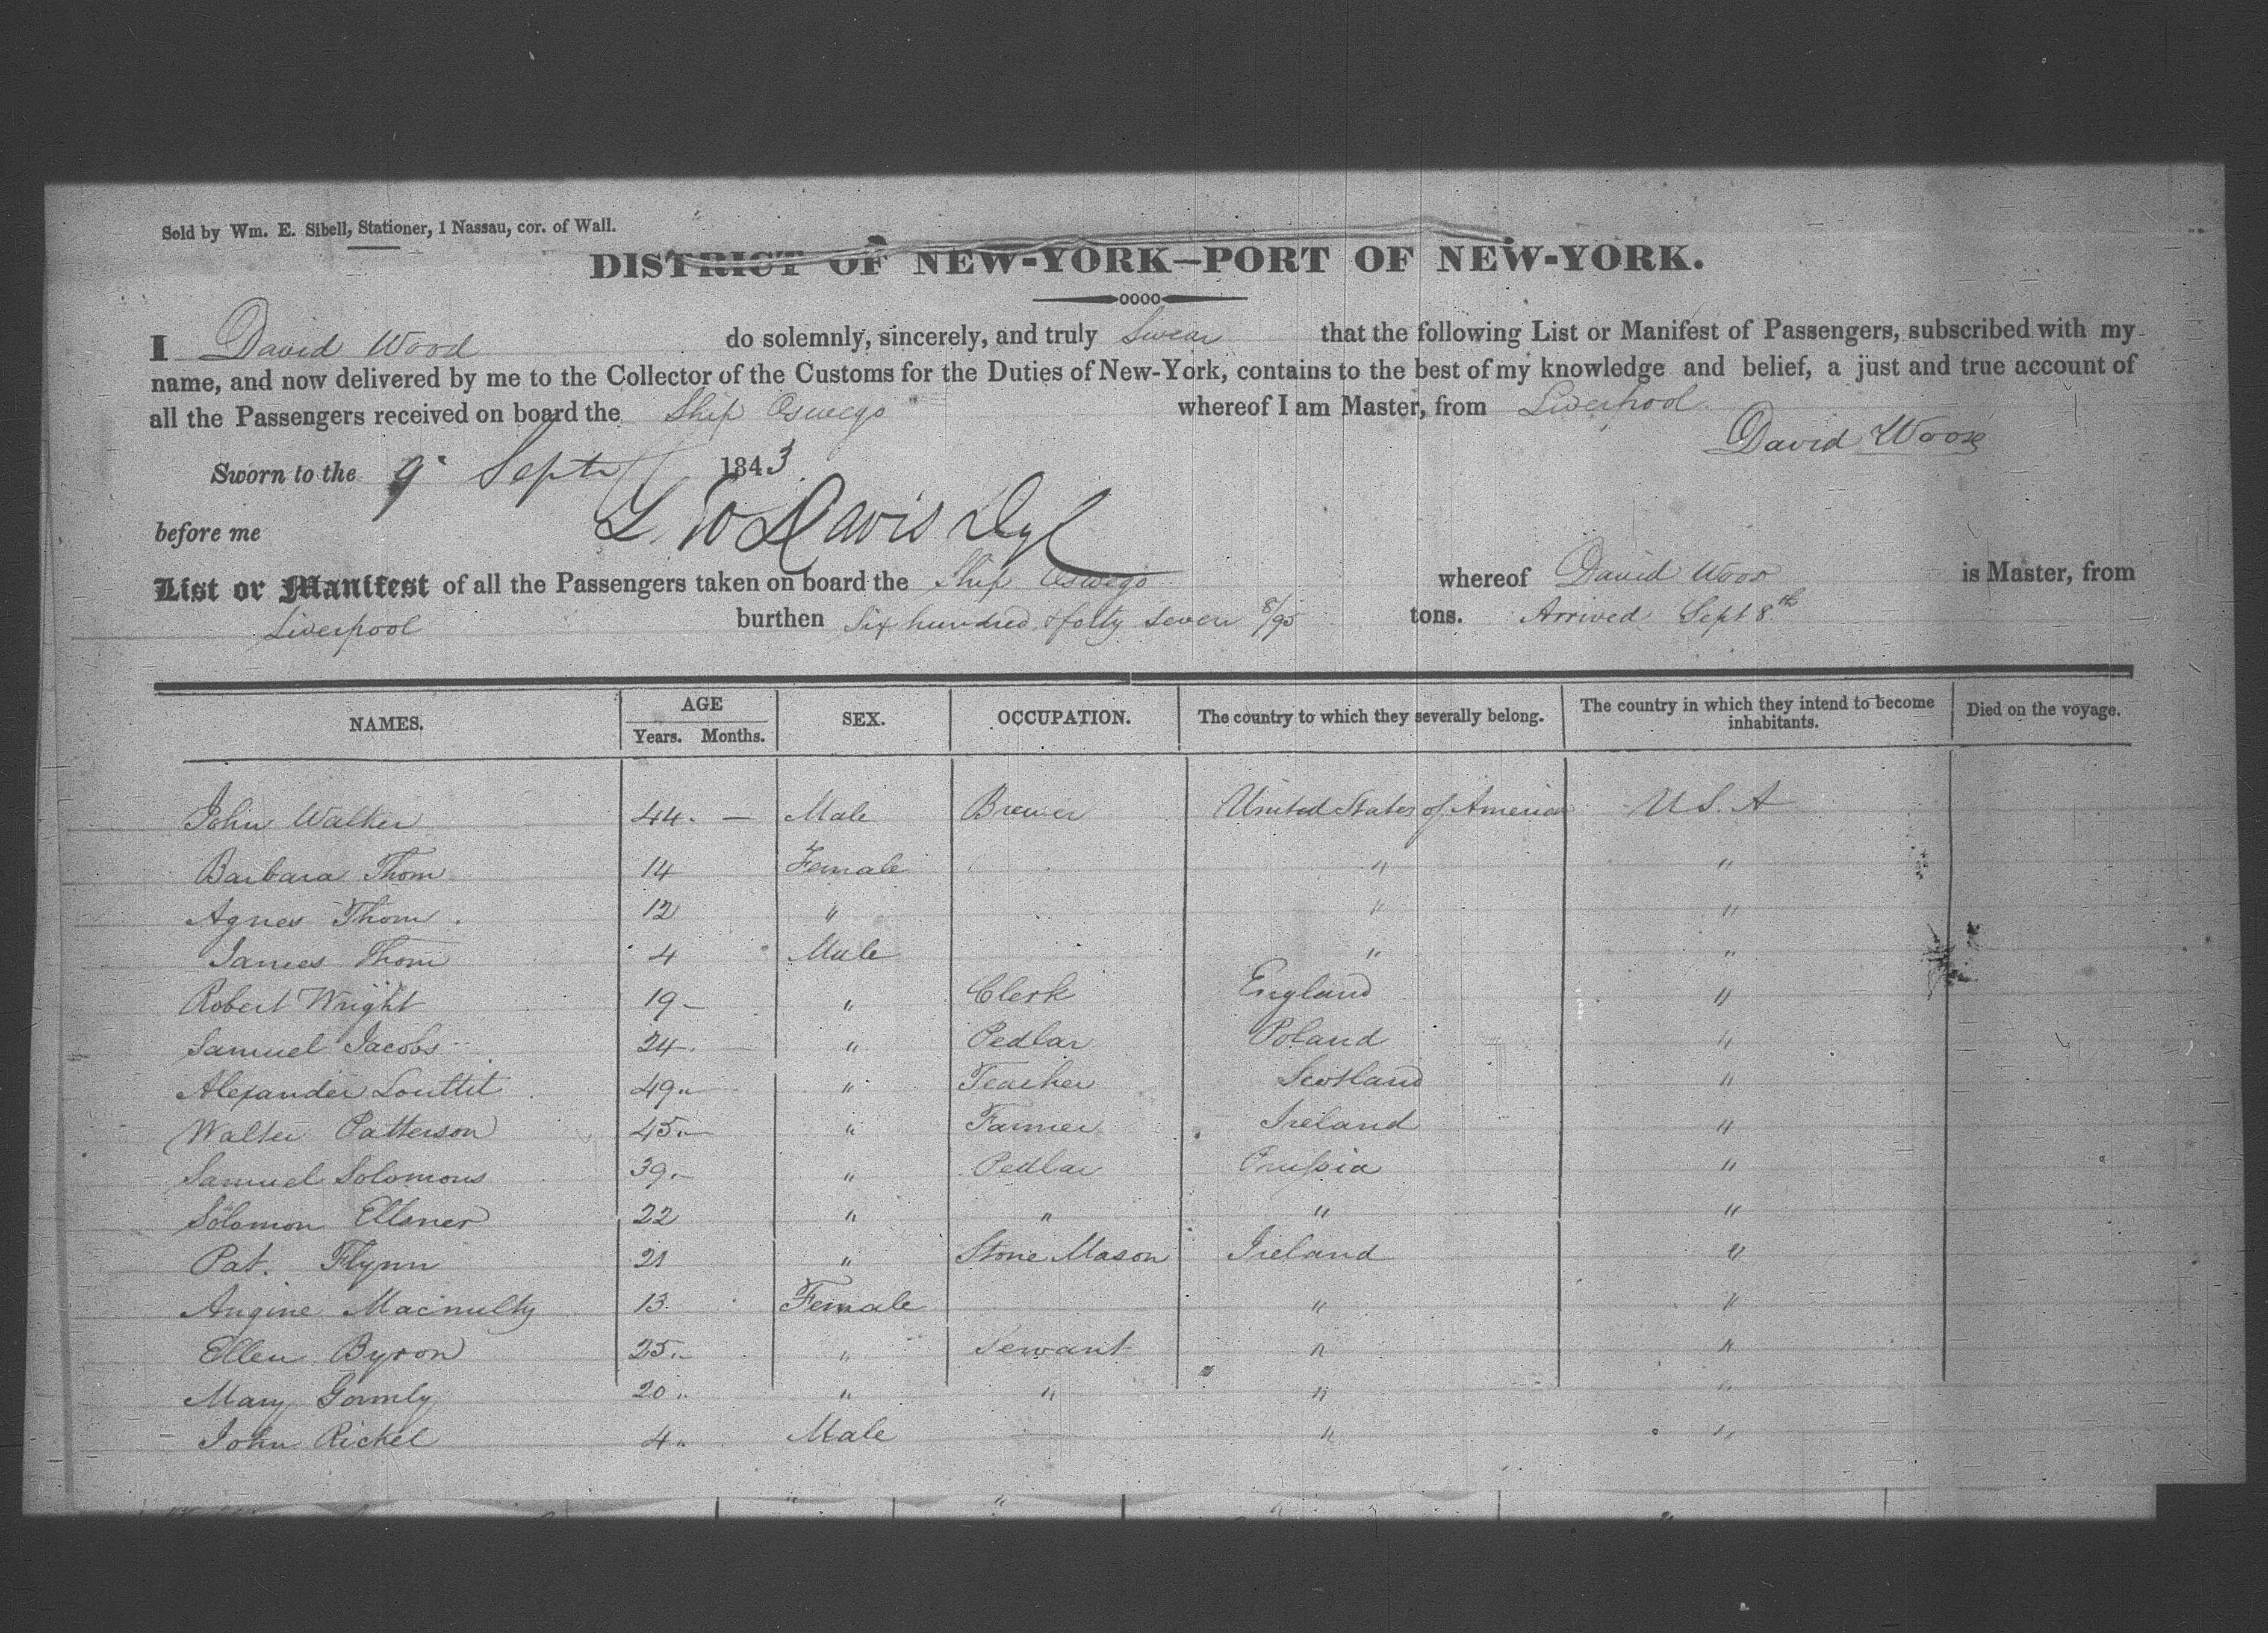 Sold by Wm. E. Sibell, Stationer, 1 Nassau, cor. of Wall.
DISTRICT OF NEW-YORK—PORT OF NEW-YORK.
I David Wood do solemnly, sincerely, and truly Swear that the following List or Manifest of Passengers, subscribed with my
name, and now delivered by me to the Collector of the Customs for the Duties of New-York, contains to the best of my knowledge and belief, a just and true account of
all the Passengers received on board the Ship Oswego whereof I am Master, from Liverpool
David Wood
Sworn to the 9 Septr 1843
before me L W Davis
List or Manifest of all the Passengers taken on board the Ship Oswego whereof David Wood is Master, from
Liverpool burthen Six hundred & forty seven 8/95 tons. Arrived Sept 8th
NAMES. AGE Years. Months. SEX. OCCUPATION. The country to which they severally belong. The country in which they intend to become inhabitants. Died on the voyage.
John Walker 44. — Male Brewer United States of America U S. A
Barbara Thom 14 Female " "
Agnes Thom 12 " " "
James Thom 4 Male " "
Robert Wright 19 – " Clerk England "
Samuel Jacobs 24 – " Pedlar Poland "
Alexander Louttit 49 " " Teacher Scotland "
Walter Patterson 45 " " Farmer Ireland "
Samuel Solomons 39. – " Pedlar Prussia "
Solomon Ellsner 22 " " " "
Pat. Flynn 21 " Stone Mason Ireland "
Angine Macnulty 13. Female " "
Ellen Byron 25 " " Servant " "
Mary Gormly 20 " " " " "
John Rickel 4 " Male " "